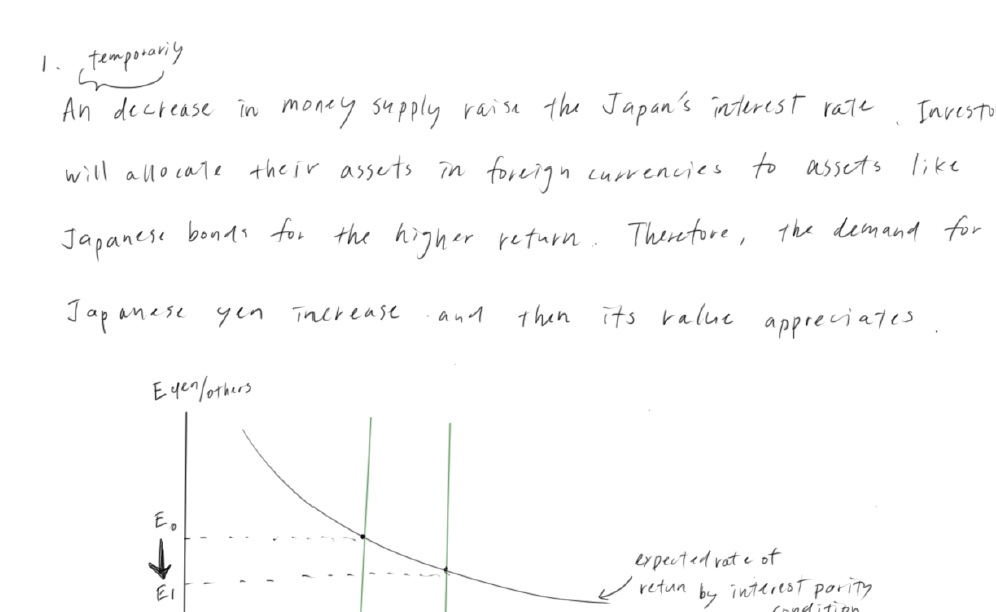 1. temporarily
An decrease in money supply raise the Japan's interest rate. Investo
will allocate their assets in foreign currencies to assets like
Japanese bonds for the higher return. Therefore, the demand for
Japanese yen increase and then its value appreciates.
E yen/others
E0
expected rate of
E1
retun by interest parity
condition